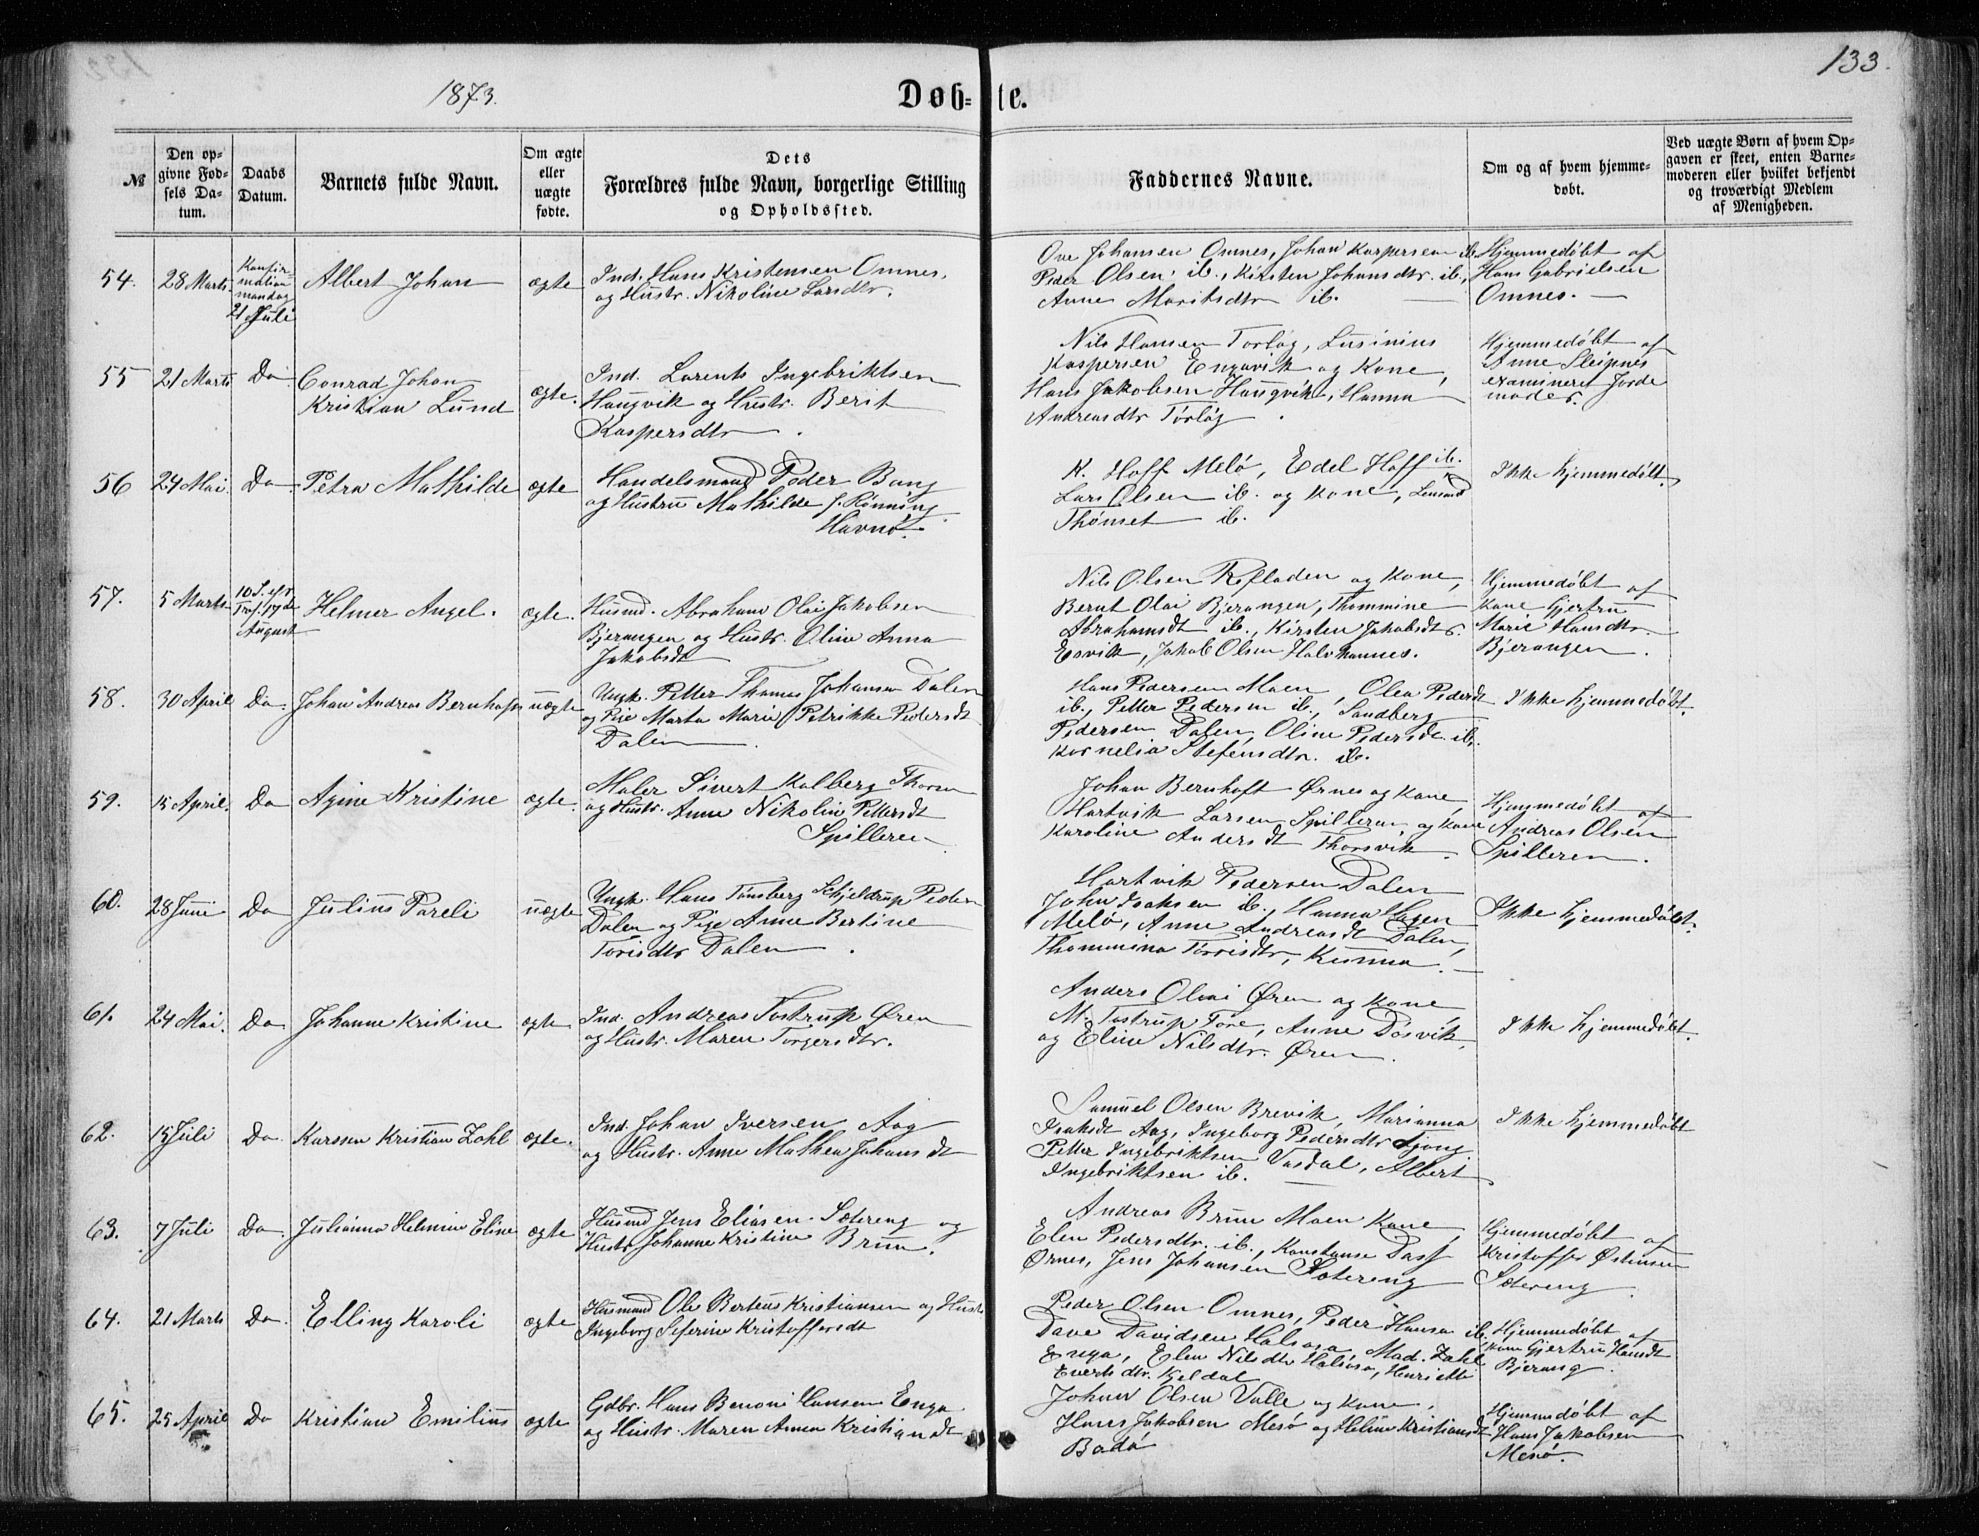 133.
1873.
Døb- te.
№
Den opgivne Fødsels Datum.
Daabs Datum.
Barnets fulde Navn.
Om ægte eller uægte fødte.
Dets Forældres fulde Navn, borgerlige Stilling og Opholdssted.
Faddernes Navne.
Om og af hvem hjemmedøbt.
Ved uægte Børn af hvem Opgaven er skeet, enten Barnemoderen eller hvilket bekjendt og troværdigt Medlem af Menigheden.
54. 28 Marts Konfirmation mandag 21 Juli Albert Johan ægte
Ind. Hans Kristensen Omnes,
og Hustr. Nikoline Larsdtr.
Ove Johansen Omnes, Johan Kaspersen ib.
Peder Olsen ib., Kirsten Johansdtr. ib.,
Anne Maritsdtr ib.
Hjemmedøbt af
Hans Gabrielsen
Omnes.
55 21 Marts Do Conrad Johan
Kristian Lund ægte.
Ind. Lorents Ingebriktsen
Haugvik og Hustr. Berit
Kaspersdtr.
Nils Hansen Torlög, Lusinius
Kaspersen Engavik og Kone,
Hans Jakobsen Haugvik, Hanna
Andreasdtr Törlög.
Hjemmedøbt af
Anne Sleipnes
examineret Jorde
moder.
56 24 Mai Do Petra Mathilde ægte
Handelsmand Peder Bang
og Hustru Mathilde f. Rönning
Havnö.
K. Hoff Melö, Edel Hoff ib.
Lars Olsen ib. og Kone,
Thömset ib.
Ikke hjemmedøbt.
57. 5 Marts 10 S. eft Tref. 17de August Helmer Angel. ægte.
Husmd. Abraham Olai Jakobsen
Bjerangen og Hustr. Oline Anna
Jakobsdt
Nils Olsen Refladen og Kone,
Bernt Olai Bjerangen, Thommine
Abrahamsdt ib., Kirsten Jakobsdtr.
Esvik, Jakob Olsen Halvhannes.
Hjemmedøbt af
Kone Gjertru
Marie Hansdtr.
Bjerangen.
58. 30 April Do. Johan Andreas Bernhoft uægte
Ungk. Petter Thomas Johansen Dalen
og Pie Marta Marie Petrikke Pedersdt
Dalen.
Hans Pedersen Moen, Olea Pedersdt
ib., Petter Pedersen ib., Sandberg
Pedersen Dalen, Oline Pedersdt. ib.
Kornelia Stefensdtr. ib.
Ikke hjemmedøbt.
59. 15 April. Do Agine Kristine ægte.
Maler Sivert Kolberg Thoren
og Hustr. Anne Nikoline Pettersdt
Spilleren
Johan Bernhoft Ørnes og Kone
Hartvik Larsen Spilleren og Kone
Karoline Andersdt Thorsvik.
Hjemmedøbt af
Andreas Olsen
Spilleren.
60. 28 Juni Do Julius Pareli uægte
Ungk. Hans Tönsberg Schjeldrup Peder
Dalen og Pige Anne Bertine
Torisdtr Dalen.
Hartvik Pedersen Dalen
John Isaksen ib., Hanna Hagen
Melö, Anne Andreasdt Dalen,
Thommina Torrisdtr, Kunna.
Ikke hjemmedøbt.
61. 24 Mai. Do Johanne Kristine ægte
Ind. Andreas Tostrup Ören
og Hustr. Maren Torgersdtr.
Anders Olai Ören og Kone
M. Tostrup Tore, Anne Dösvik,
og Eline Nilsdtr. Ören.
Ikke hjemmedøbt.
62. 15 Juli Do. Karssen Kristian Zahl ægte.
Ind. Johan Iversen Aag
og Hustr. Anne Mathea Johansdt
Samuel Olsen Brevik, Marianna
Isaksdt Aag, Ingeborg Pedersdtr Tjong.
Petter Ingebriktsen Vasdal, Albert
Ingebriktsen ib.
Ikke hjemmedøbt
63. 7 Juli Do. Julianna Helmine Eline ægte
Husmd Jens Eliasen Sætereng og
Hustr Johanne Kristine Brun.
Andreas Brun Moen Kone
Elen Pedersdtr. ib., Konstanse Dass
Ørnes, Jens Johansen Sætereng
Hjemmedøbt af
Kristoffer Östensen
Sætereng.
64. 21 Marts Do. Elling Karoli ægte
Husmand Ole Berteus Kristiansen og Hust.
Ingeborg Seferine Kristoffersdt
Peder Olsen Omnes, Peder Hansa ib.
Dave Davidsen Halsaa, Mad. Zahl
Enga, Elen Nilsdtr Halsaa, Henriette
Evertsdtr. Kjeldal
Hjemmedøbt af
Kone Gjertru Hansdt
Bjerang.
65. 25 April Do Kristian Emilius ægte
Gdbr. Hans Benoni Hansen Enga
og Hustr. Maren Anna Kristiansdt
Johan Olsen Valle og Kone,
Hans Jakobsen Mesö og Heline Kristiansdt
Bodö
Hjemmedøbt af
Hans Jakobsen
Mesö.